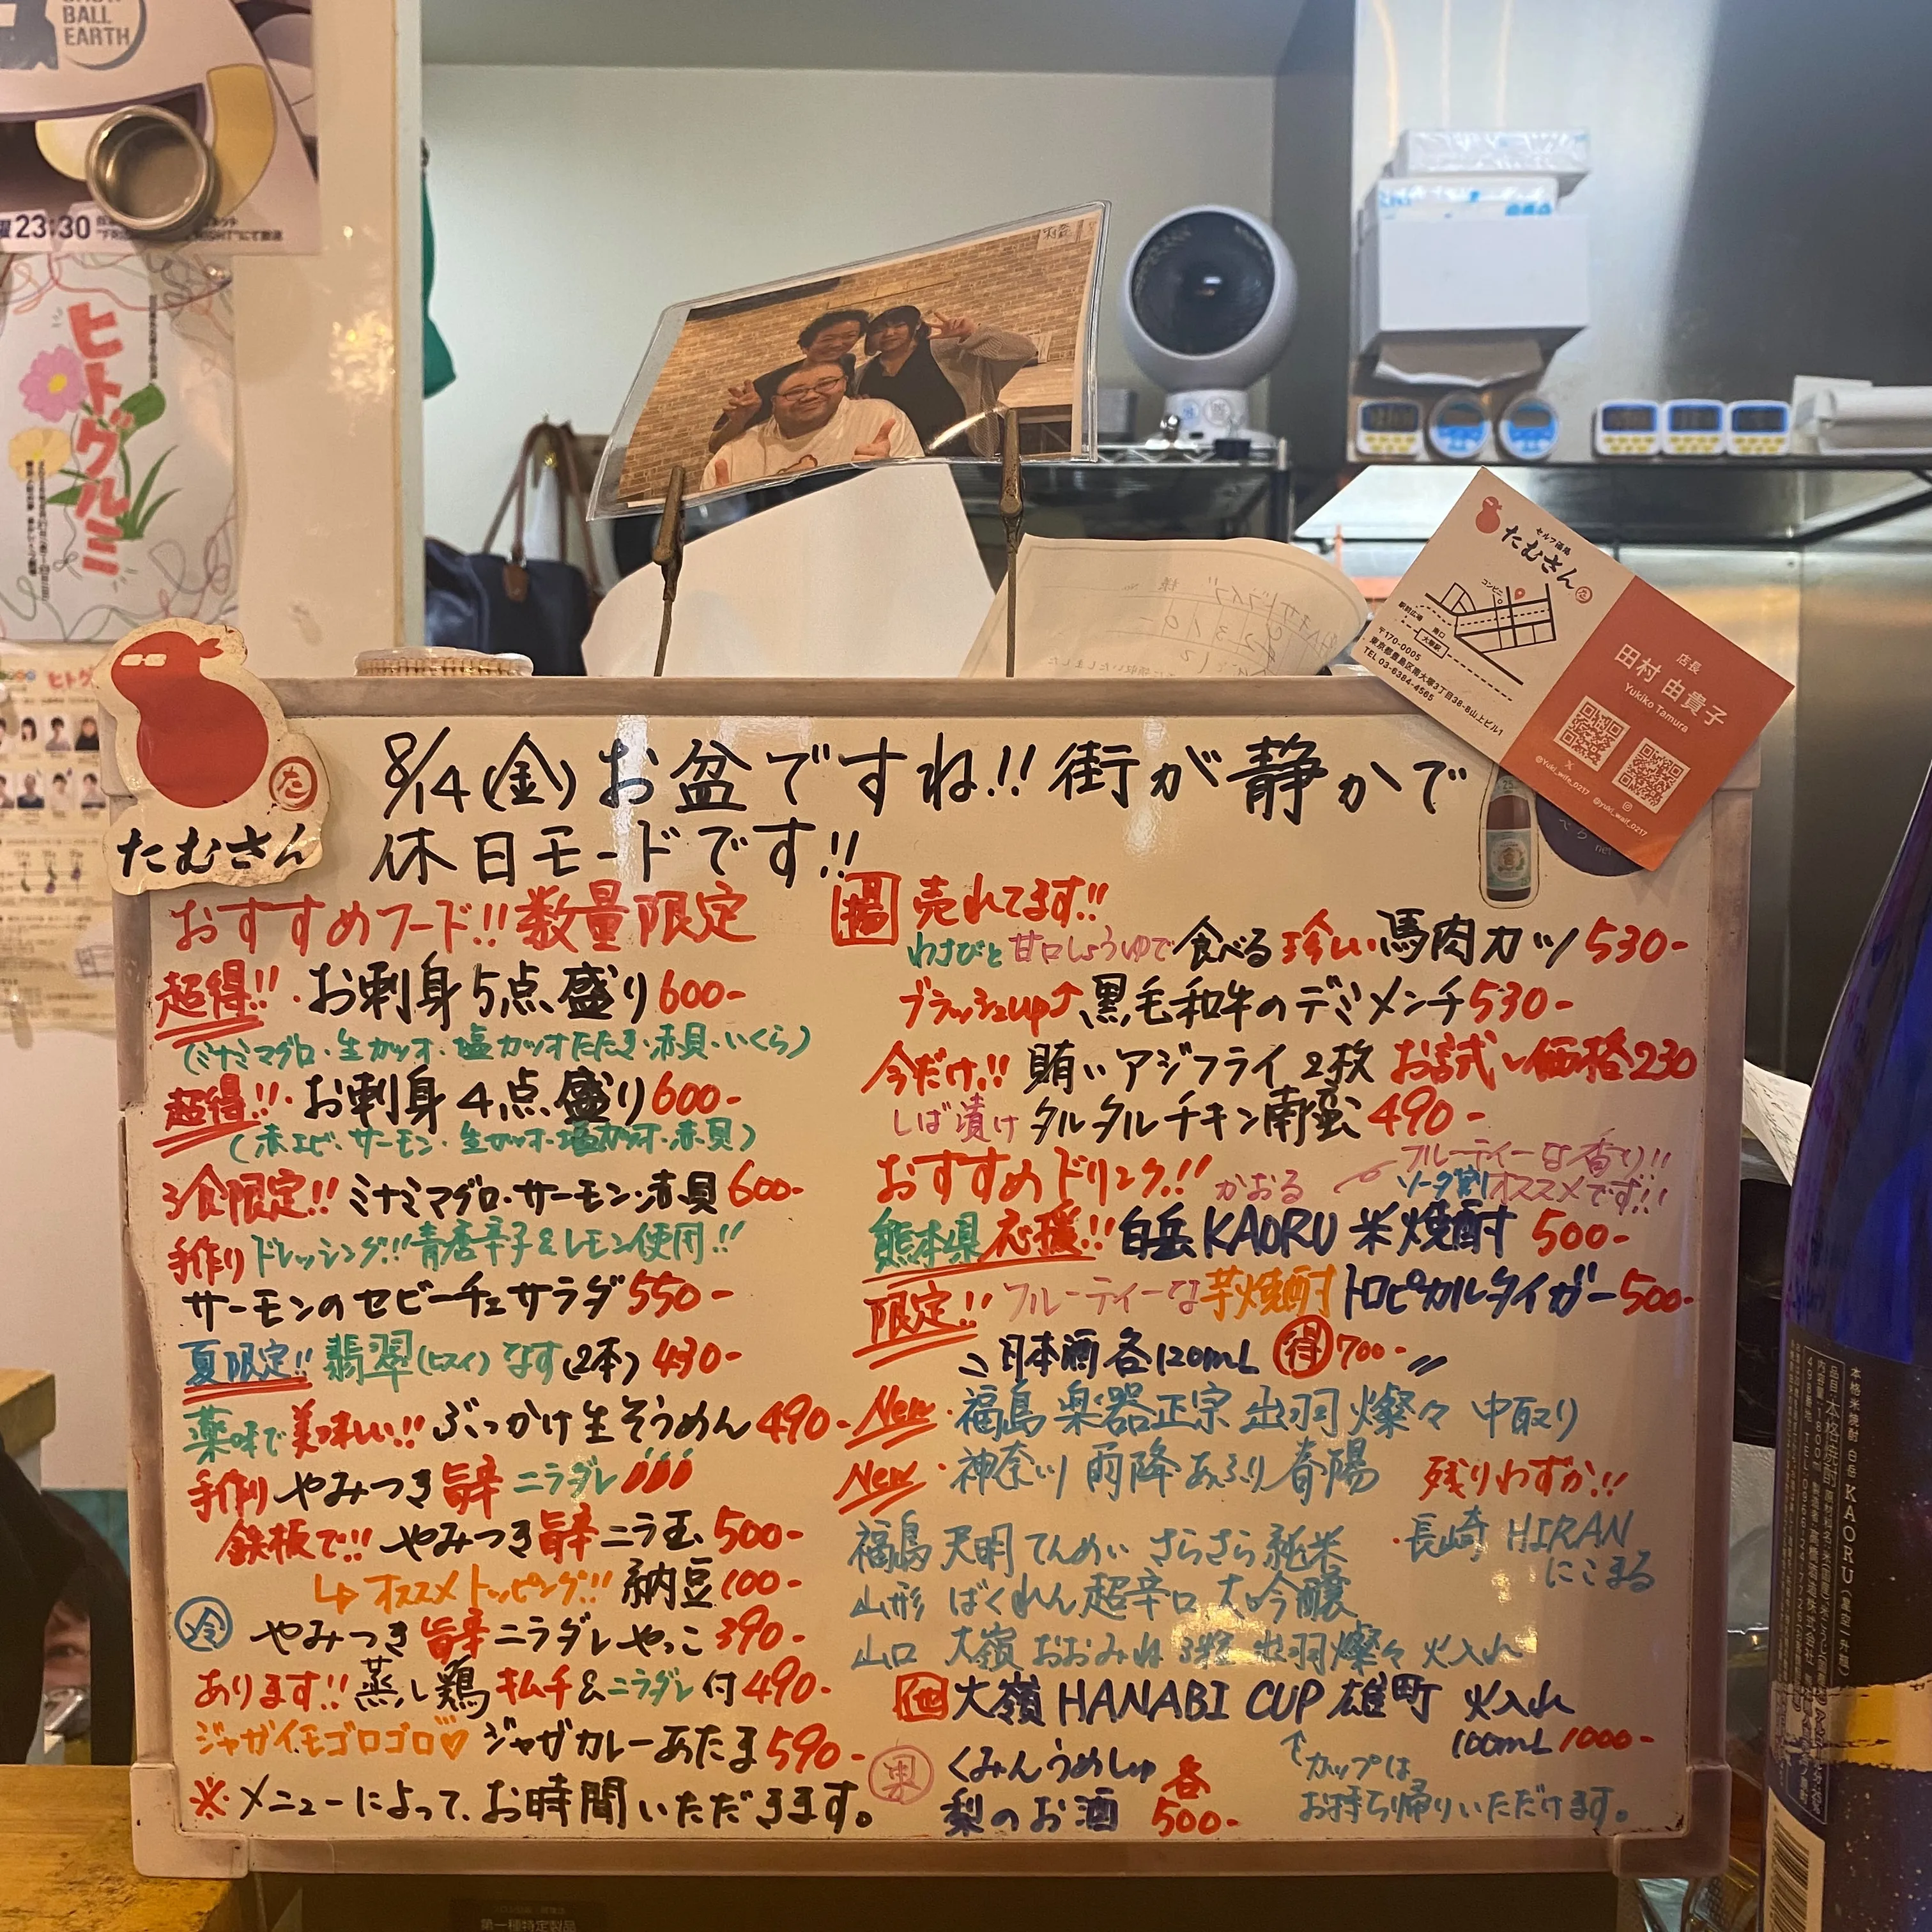 BALL
EARTH
23:30
ヒトグルミ
セルフ酒場
たむさん
コンビニ
南口
大塚駅
〒170-0005
東京都豊島区南大塚3丁目38-8山上ビル1
TEL 03-6384-4565
店長
田村 由貴子
Yukiko Tamura
@Yuki_wife_0217
@yuki_wait_0217
た
たむさん
8/14(金)お盆ですね!!街が静かで
休日モードです!!
おすすめフード!!数量限定
超得!!・お刺身5点盛り600-
(ミナミマグロ・生カツオ・塩カツオたたき・赤貝・いくら)
超得!!・お刺身4点盛り600-
(赤エビ・サーモン・生カツオ・塩カツオ・赤貝)
3食限定!!ミナミマグロ・サーモン・赤貝600-
手作りドレッシング!!青唐辛子&レモン使用!!
サーモンのセビーチェサラダ550-
夏限定!!翡翠(ヒスイ)なす(2本)430-
薬味で美味しい!!ぶっかけ生そうめん490-
手作りやみつき旨辛ニラダレ
鉄板で!!やみつき旨辛ニラ玉500-
↳オススメトッピング!!納豆100-
冷 やみつき旨辛ニラダレやっこ390-
あります!!蒸し鶏キムチ&ニラダレ付490-
ジャガイモゴロゴロ♡ジャガカレーあたま590-
※メニューによって、お時間いただきます。
揚 売れてます!!
わさびと甘口しょうゆで食べる珍しい馬肉カツ530-
ブラッシュup↑黒毛和牛のデミメンチ530-
今だけ!!賄いアジフライ2枚お試し価格230
しば漬けタルタルチキン南蛮490-
おすすめドリンク!!
かおる
フルーティーな香り!!
ソーダ割オススメです!!
熊本県応援!!白岳KAORU米焼酎500-
限定!!フルーティーな芋焼酎トロピカルタイガー500-
日本酒各120mL 得700-
New・福島 楽器正宗 出羽燦々 中取り
New・神奈川 雨降あふり春陽
残りわずか!!
・長崎 HIRAN
にこまる
福島 天明てんめい さらさら純米
山形 ばくれん超辛口大吟醸
山口 大嶺おおみね 3粒 出羽燦々 火入れ
大嶺HANABI CUP雄町 火入れ
100mL 1000-
↑カップは
お持ち帰りいただけます。
果 くみんうめしゅ
梨のお酒
各
500-
本格米焼酎 白岳 KAORU
第一種特定製品